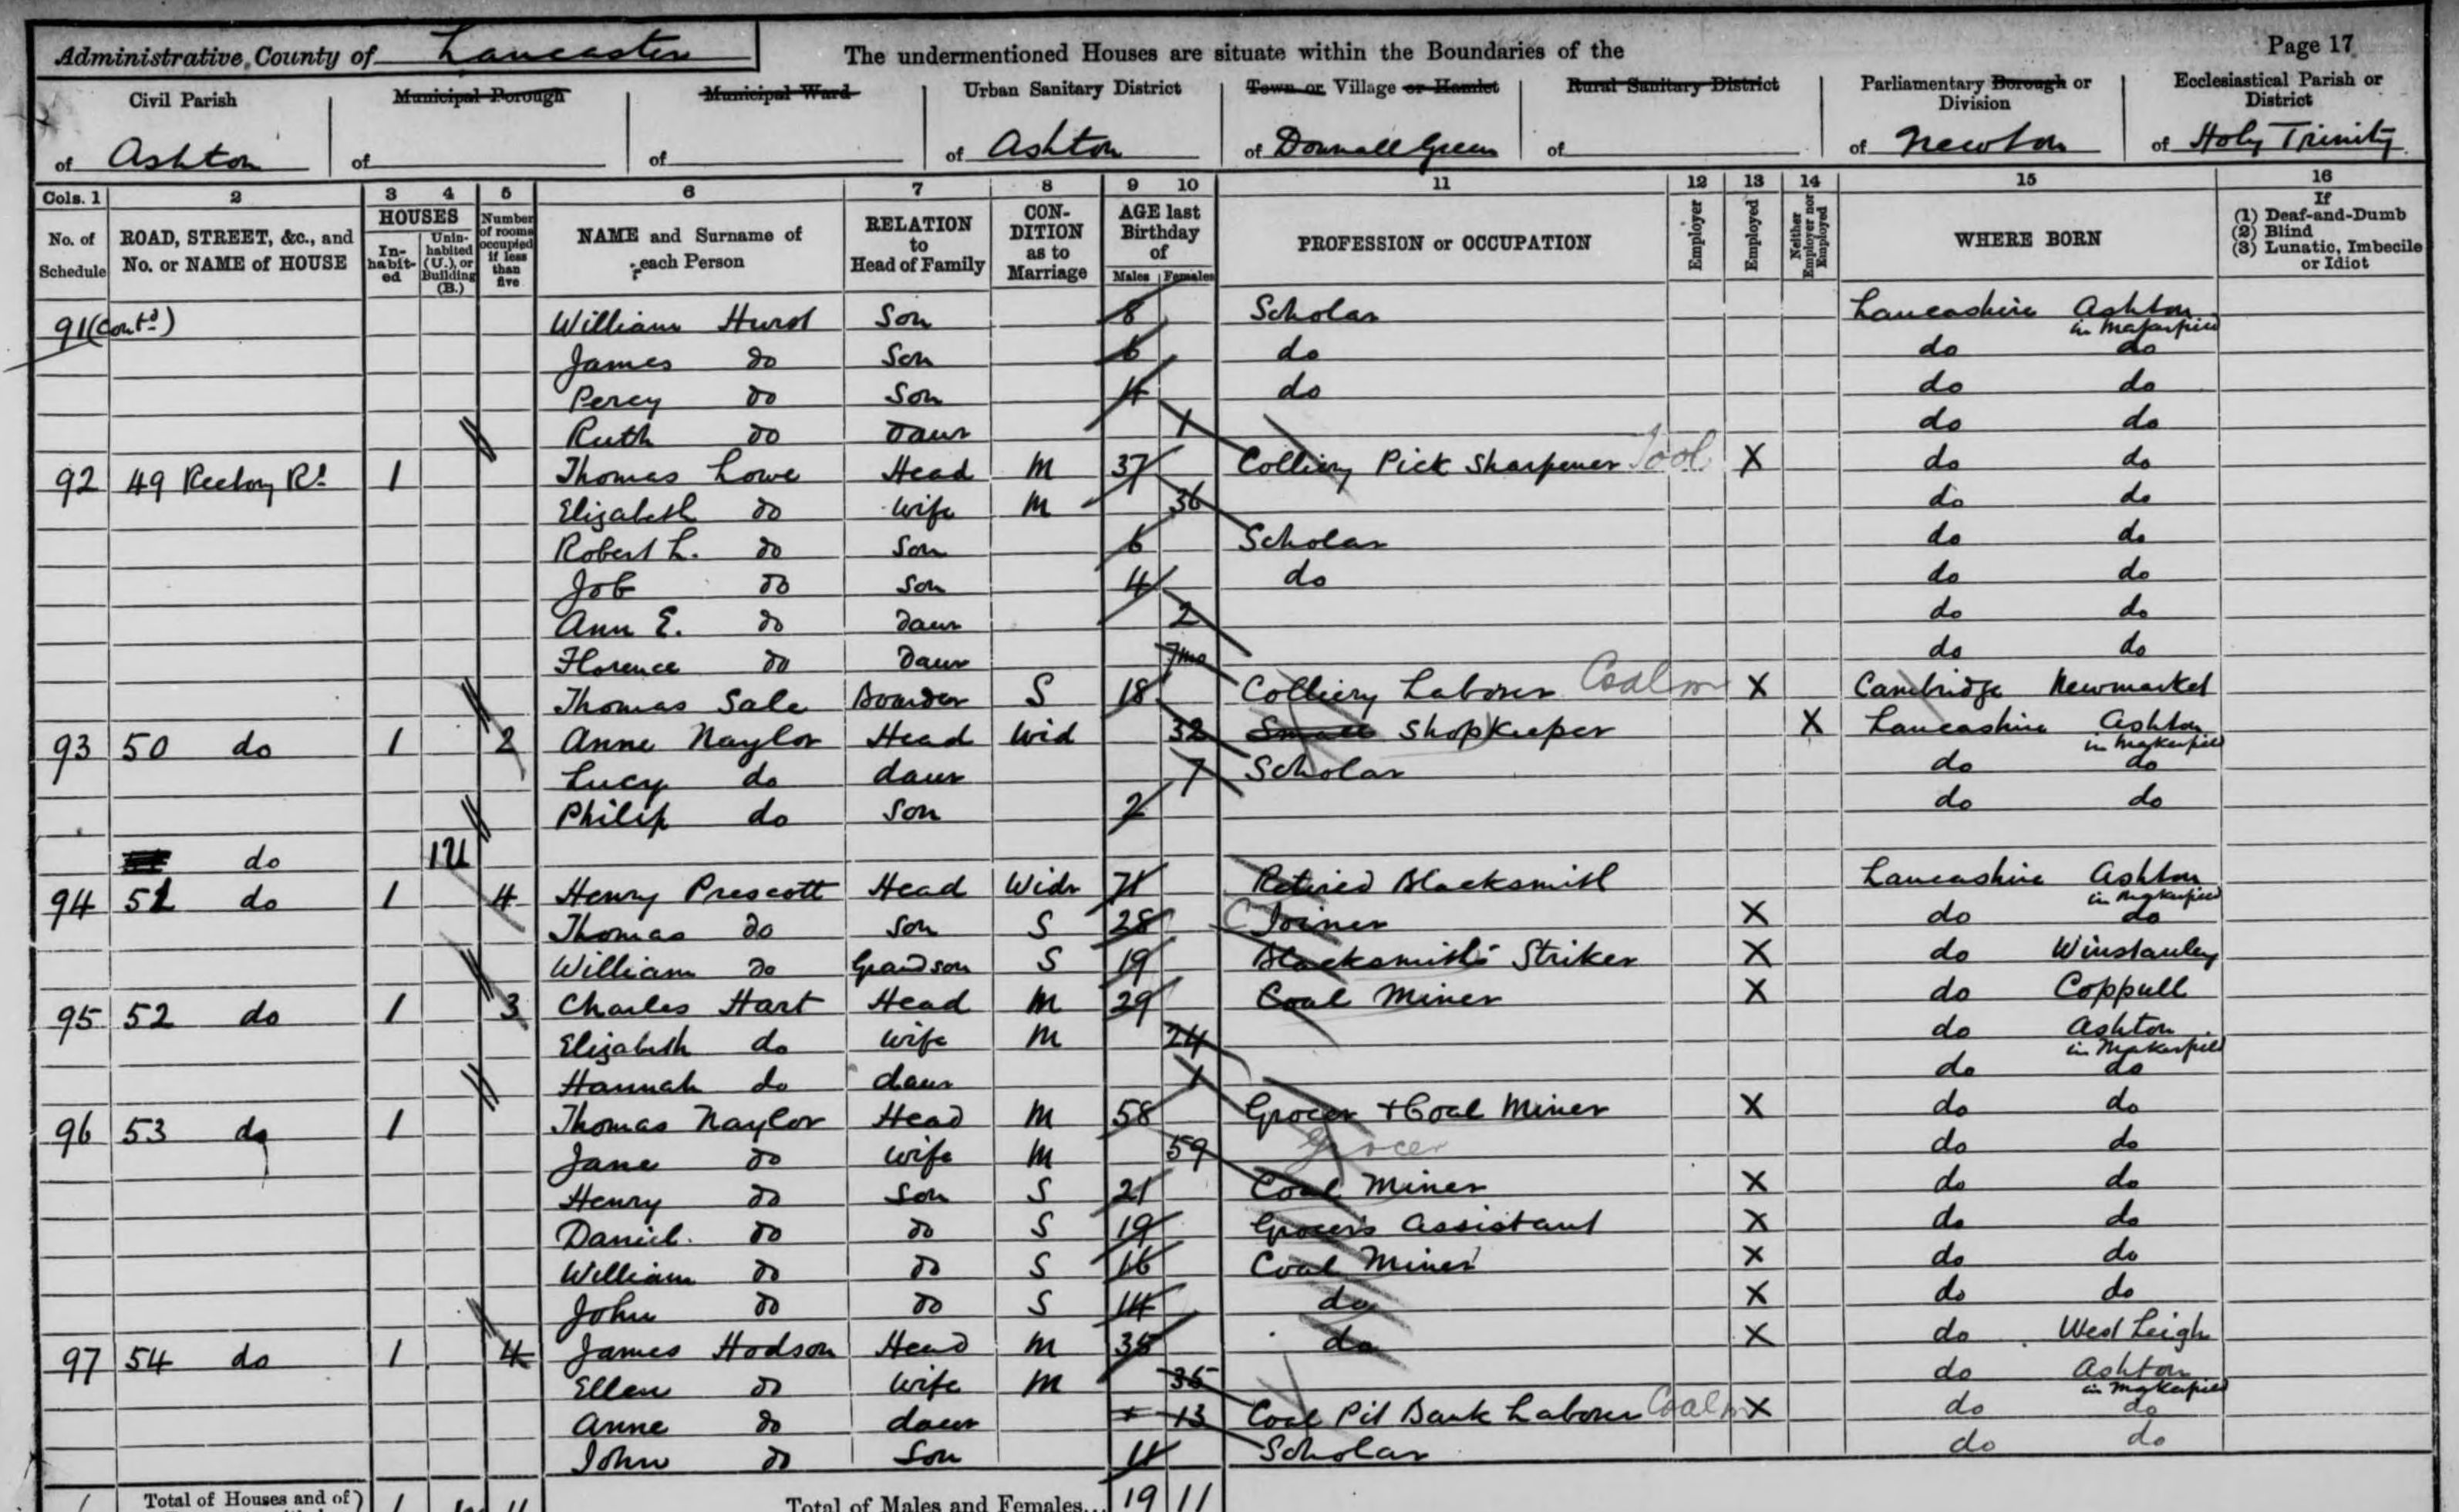 Administrative County of Lancaster The undermentioned Houses are situate within the Boundaries of the Page 17
Civil Parish Municipal Borough Municipal Ward Urban Sanitary District Town or Village or Hamlet Rural Sanitary District Parliamentary Borough or Division Ecclesiastical Parish or District
of Ashton of of of Ashton of Downall Green of of Newton of Holy Trinity
Cols. 1 2 3 4 5 6 7 8 9 10 11 12 13 14 15 16
No. of Schedule ROAD, STREET, &c., and No. or NAME of HOUSE HOUSES Inhabited Uninhabited (U.), or Building (B.) Number of rooms occupied if less than five NAME and Surname of each Person RELATION to Head of Family CONDITION as to Marriage AGE last Birthday of Males Females PROFESSION or OCCUPATION Employer Employed Neither Employer nor Employed WHERE BORN If (1) Deaf-and-Dumb (2) Blind (3) Lunatic, Imbecile or Idiot
91 (Contd) William Hurst Son 8 Scholar Lancashire Ashton in Makerfield
James do Son 6 do do do
Percy do Son 4 do do do
Ruth do Daur 1 do do
92 49 Rectory Rd 1 Thomas Lowe Head M 37 Colliery Pick Sharpener Tool X do do
Elizabeth do Wife M 36 do do
Robert L. do Son 6 Scholar do do
Job do Son 4 do do do
Ann E. do Daur 2 do do
Florence do Daur 7mo do do
Thomas Sale Boarder S 18 Colliery Laborer Coal m X Cambridge Newmarket
93 50 do 1 2 Anne Naylor Head Wid 32 Small Shopkeeper X Lancashire Ashton in Makerfield
Lucy do daur 7 Scholar do do
Philip do Son 2 do do
do 1U
94 51 do 1 4 Henry Prescott Head Widr 71 Retired Blacksmith Lancashire Ashton in Makerfield
Thomas do Son S 28 C Joiner X do do
William do Grandson S 19 Blacksmith's Striker X do Winstanley
95 52 do 1 3 Charles Hart Head M 29 Coal Miner X do Coppull
Elizabeth do Wife M 24 do Ashton in Makerfield
Hannah do daur 1 do do
96 53 do 1 Thomas Naylor Head M 58 Grocer + Coal Miner X do do
Jane do Wife M 59 Grocer do do
Henry do Son S 21 Coal Miner X do do
Daniel do do S 19 Grocers Assistant X do do
William do do S 16 Coal Miner X do do
John do do S 14 do X do do
97 54 do 1 4 James Hodson Head M 35 do X do West Leigh
Ellen do Wife M 35 do Ashton in Makerfield
Anne do daur 13 Coal Pit Bank Laborer Coal m X do do
John do Son 11 Scholar do do
Total of Houses and of Total of Males and Females... 19 11